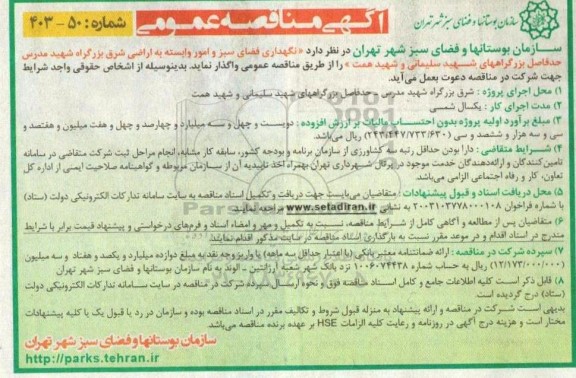 سازمان بوستانها و فضای سبز شهر تهران
آگهی مناقصه عمومی
شماره: ۵۰ - ۴۰۳
سازمان بوستانها و فضای سبز شهر تهران در نظر دارد « نگهداری فضای سبز و امور وابسته به اراضی شرق بزرگراه شهید مدرس
حدفاصل بزرگراههای شهید سلیمانی و شهید همت » را از طریق مناقصه عمومی واگذار نماید. بدینوسیله از اشخاص حقوقی واجد شرایط
جهت شرکت در مناقصه دعوت بعمل می‌آید.
۱) محل اجرای پروژه : شرق بزرگراه شهید مدرس - حدفاصل بزرگراههای شهید سلیمانی و شهید همت
۲) مدت اجرای کار : یکسال شمسی
۳) مبلغ برآورد اولیه پروژه بدون احتساب مالیات بر ارزش افزوده : دویست و چهل و سه میلیارد و چهارصد و چهل و هفت میلیون و هفتصد و
سی و سه هزار و ششصد و سی (۲۴۳/۴۴۷/۷۳۳/۶۳۰) ریال می‌باشد.
۴) شرایط متقاضی : دارا بودن حداقل رتبه سه کشاورزی از سازمان برنامه و بودجه کشور، سابقه کار مشابه، انجام مراحل ثبت شرکت متقاضی در سامانه
تامین کنندگان و ارائه‌دهندگان خدمت موجود در پرتال شهرداری تهران بهمراه اخذ تاییدیه آن از سازمان مربوطه و گواهینامه صلاحیت ایمنی از اداره کل
تعاون، کار و رفاه اجتماعی الزامی می‌باشد.
۵) محل دریافت اسناد و قبول پیشنهادات : متقاضیان می‌بایست جهت دریافت و تکمیل اسناد مناقصه به سایت سامانه تدارکات الکترونیکی دولت (ستاد)
با شماره فراخوان ۲۰۰۳۱۰۳۷۷۸۰۰۰۱۰۸ به نشانی www.setadiran.ir مراجعه نمایند.
۶) متقاضیان پس از مطالعه و آگاهی کامل از شرایط مناقصه، نسبت به تکمیل و مهر و امضاء اسناد و فرم‌های درخواستی و پیشنهاد قیمت برابر با شرایط
مندرج در اسناد اقدام و در موعد مقرر نسبت به بارگذاری اسناد مناقصه در سایت مذکور اقدام نمایند.
۷) سپرده شرکت در مناقصه : ارائه ضمانتنامه معتبر بانکی (با اعتبار حداقل سه ماهه) یا واریز وجه نقد به مبلغ دوازده میلیارد و یکصد و هفتاد و سه میلیون
(۱۲/۱۷۳/۰۰۰/۰۰۰) ریال به حساب شماره ۱۰۰۶۰۷۴۴۳۸ نزد بانک شهر شعبه آرژانتین - الوند به نام سازمان بوستانها و فضای سبز شهر تهران
۸) قابل ذکر است کلیه اطلاعات جامع و کامل اسناد مناقصه فوق و نحوه ارسال سپرده شرکت در مناقصه در سایت سامانه تدارکات الکترونیکی دولت
(ستاد) درج گردیده است.
بدیهی است شرکت در مناقصه و ارائه پیشنهاد به منزله قبول شروط و تکالیف مقرر در اسناد مناقصه بوده و سازمان در رد یا قبول یک یا کلیه پیشنهادات
مختار است و هزینه درج آگهی در روزنامه و رعایت کلیه الزامات HSE بر عهده برنده مناقصه می‌باشد.
سازمان بوستانها و فضای سبز شهر تهران
http://parks.tehran.ir